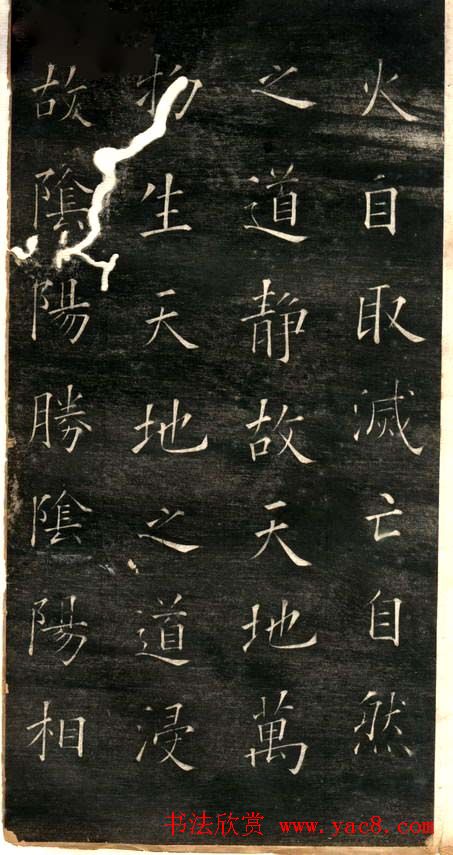 火自取滅亡自然
之道静故天地萬
物生天地之道浸
故陰陽勝陰陽相
书法欣赏 www.yac8.com